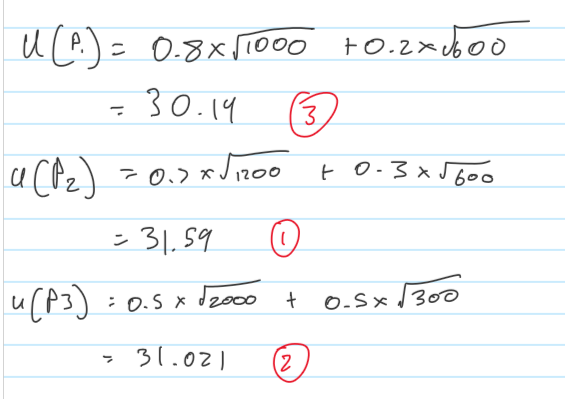 U(P1) = 0.8×√1000 + 0.2×√600
= 30.19 ③
u(P2) = 0.7×√1200 + 0.3×√600
= 31.59 ①
u(P3) = 0.5 × √2000 + 0.5×√300
= 31.021 ②